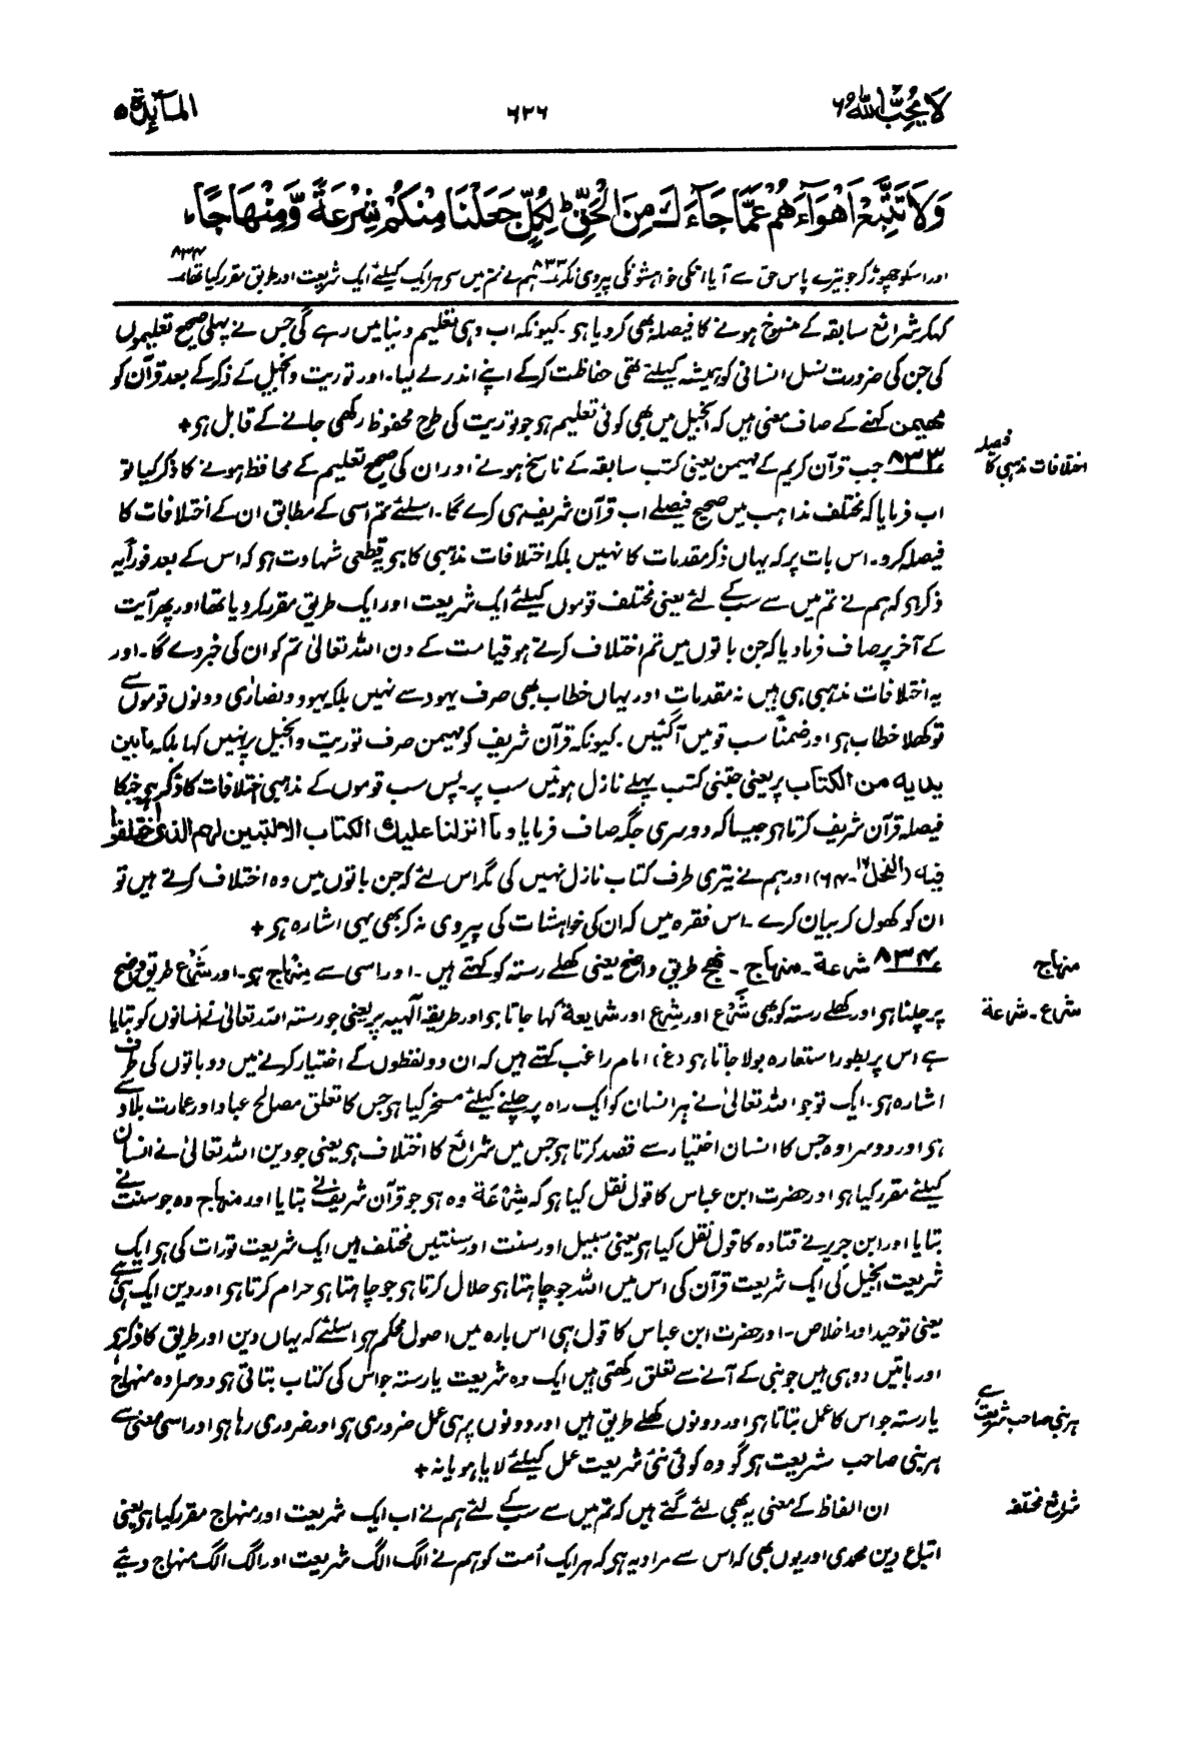 لَا یُحِبُّ اللّٰہُ ۶
۶۲۶
المآئدۃ ۵
وَلَا تَتَّبِعْ اَھْوَآءَھُمْ عَمَّا جَآءَكَ مِنَ الْحَقِّ ؕ لِكُلٍّ جَعَلْنَا مِنْكُمْ شِرْعَةً وَّمِنْهَاجًا ؕ
اور اسکو چھوڑ کر جو تیرے پاس حق سے آیا انکی خواہشونکی پیروی نکر ۸۳۳ ہم نے تم میں سے ہر ایک کیلئے ایک شریعت اور طریق مقرر کیا تھا ۸۳۴
کہکر شرائع سابقہ کے منسوخ ہونے کا فیصلہ بھی کر دیا ہو۔ کیونکہ اب وہی تعلیم دنیا میں رہے گی جس نے پہلی صحیح تعلیموں
کی جن کی ضرورت نسل انسانی کو ہمیشہ کیلئے تھی حفاظت کرکے اپنے اندر لے لیا۔ اور توریت و انجیل کے ذکر کے بعد قرآن کو
مھیمن کہنے کے صاف معنی ہیں کہ انجیل میں بھی کوئی تعلیم ہو جو توریت کی طرح محفوظ رکھی جانے کے قابل ہو +
فیصلہ
اختلافات مذہبی کا
۸۳۳ جب قرآن کریم کے مہیمن یعنی کتب سابقہ کے ناسخ ہونے اور ان کی صحیح تعلیم کے محافظ ہونے کا ذکر کیا تو
اب فرمایا کہ مختلف مذاہب میں صحیح فیصلے اب قرآن شریف ہی کرے گا۔ اسلئے تم اسی کے مطابق ان کے اختلافات کا
فیصلہ کرو۔ اس بات پر کہ یہاں ذکر مقدمات کا نہیں بلکہ اختلافات مذہبی کا ہو یہ قطعی شہادت ہو کہ اس کے بعد فوراً یہ
ذکر ہو کہ ہم نے تم میں سے سب کے لئے یعنی مختلف قوموں کیلئے ایک شریعت اور ایک طریق مقرر کر دیا تھا اور پھر آیت
کے آخر پر صاف فرما دیا کہ جن باتوں میں تم اختلاف کرتے ہو قیامت کے دن اللہ تعالیٰ تم کو ان کی خبر دے گا۔ اور
یہ اختلافات مذہبی ہی ہیں نہ مقدمات اور یہاں خطاب بھی صرف یہود سے نہیں بلکہ یہود و نصاریٰ دونوں قوموں سے
تو کھلا خطاب ہو اور ضمناً سب قومیں آگئیں۔ کیونکہ قرآن شریف کو مہیمن صرف توریت و انجیل پر نہیں کہا بلکہ مابین
یدایہ من الکتاب پر یعنی جتنی کتب پہلے نازل ہوئیں سب پر۔ پس سب قوموں کے مذہبی اختلافات کا ذکر ہو جنکا
فیصلہ قرآن شریف کرتا ہو جیسا کہ دوسری جگہ صاف فرمایا وما انزلنا علیك الکتاب الا لتبین لہم الذی اختلفوا
فیہ (النحل ۱۶۔ ۶۴) اور ہم نے تیری طرف کتاب نازل نہیں کی مگر اس لئے کہ جن باتوں میں وہ اختلاف کرتے ہیں تو
ان کو کھول کر بیان کرے۔ اس فقرہ میں کہ ان کی خواہشات کی پیروی نہ کر بھی یہی اشارہ ہو +
منہاج
۸۳۴ شرعۃ۔ منہاج۔ نھج طریق واضح یعنی کھلے رستہ کو کہتے ہیں۔ اور اسی سے منہاج ہو۔ اور شَرْع طریق واضح
شرع۔ شرعۃ
پر چلنا ہو اور کھلے رستہ کو بھی شَرْع اور شِرع اور شریعۃ کہا جاتا ہو اور طریقہ آلٰہیہ پر یعنی جو رستہ اللہ تعالیٰ نے انسانوں کو بتایا
ہے اس پر بطور استعارہ بولا جاتا ہو (غ) امام راغب کہتے ہیں کہ ان دو لفظوں کے اختیار کرنے میں دو باتوں کی طرف
اشارہ ہو۔ ایک تو جو اللہ تعالیٰ نے ہر انسان کو ایک راہ پر چلنے کیلئے مسخر کیا ہو جس کا تعلق مصالح عباد اور عمارت بلاد سے
ہو اور دوسرا وہ جس کا انسان اختیار سے قصد کرتا ہو جس میں شرائع کا اختلاف ہو یعنی جو دین اللہ تعالیٰ نے انسان
کیلئے مقرر کیا ہو اور حضرت ابن عباس کا قول نقل کیا ہو کہ شِرْعَة وہ ہو جو قرآن شریف نے بتایا اور منہاج وہ جو سنت نے
بتایا اور ابن جریر نے قتادہ کا قول نقل کیا ہو یعنی سبیل اور سنت اور سنتیں مختلف ہیں ایک شریعت تورات کی ہو ایک
شریعت انجیل کی ایک شریعت قرآن کی اس میں اللہ جو چاہتا ہو حلال کرتا ہو جو چاہتا ہو حرام کرتا ہو اور دین ایک ہی ہے
یعنی توحید اور اخلاص۔ اور حضرت ابن عباس کا قول ہی اس بارہ میں اصول محکم ہو اسلئے کہ یہاں دین اور طریق کا ذکر ہو
اور باتیں دو ہی ہیں جو نبی کے آنے سے تعلق رکھتی ہیں ایک وہ شریعت یا رستہ جو اس کی کتاب بتاتی ہو دوسرا وہ منہاج
ہر نبی صاحب شریعت ہے
یا رستہ جو اس کا عمل بتاتا ہو اور دونوں کھلے طریق ہیں اور دونوں پر ہی عمل ضروری ہو اور ضروری رہا ہو اور اسی معنی سے
ہر نبی صاحب شریعت ہو گو وہ کوئی نئی شریعت عمل کیلئے لایا ہو یا نہ +
شرائع مختلفہ
ان الفاظ کے معنی یہ بھی لئے گئے ہیں کہ تم میں سے سب کے لئے ہم نے اب ایک شریعت اور منہاج مقرر کیا ہو یعنی
اتباع دین محمدی اور یوں بھی کہ اس سے مراد یہ ہو کہ ہر ایک اُمت کو ہم نے الگ الگ شریعت اور الگ الگ منہاج دیئے